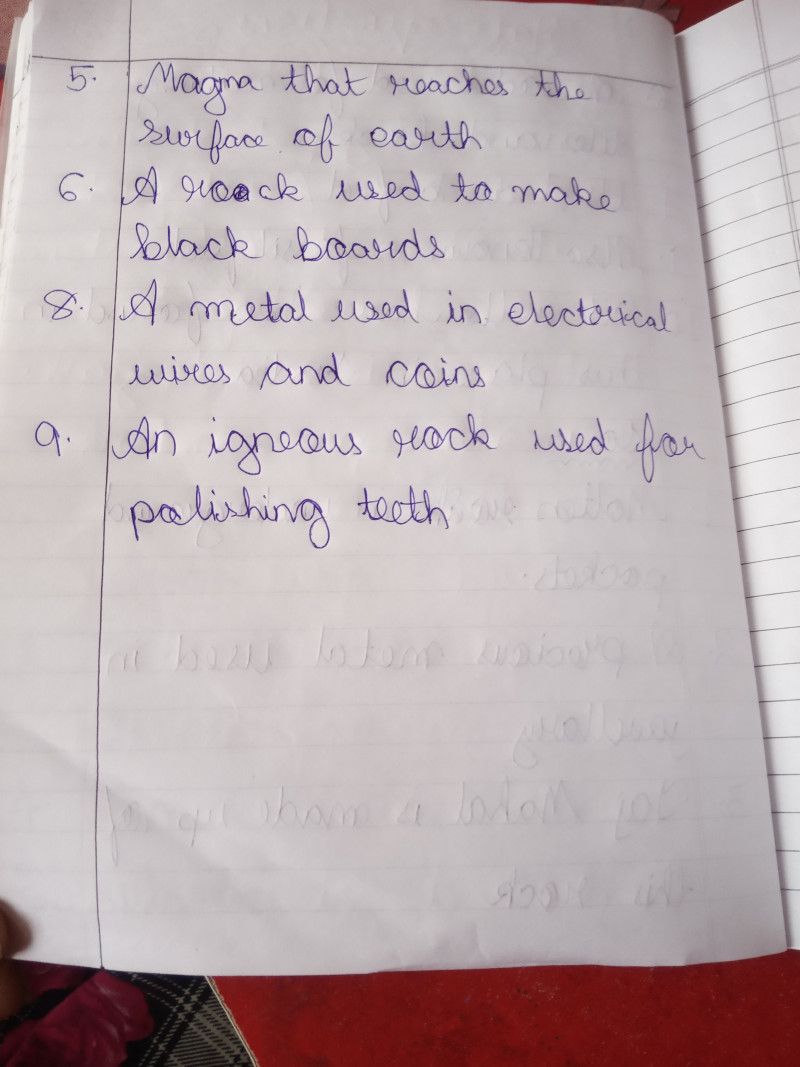 5. Magma that reaches the
surface of earth
6. A roack used to make
black boards
8. A metal used in electorical
wires and coins
9. An igneous rock used for
polishing teeth